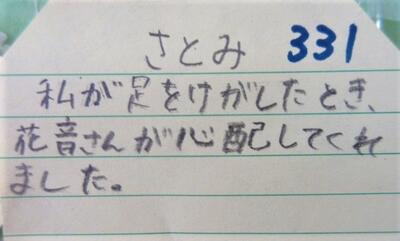 さとみ 331
私が足をけがしたとき、
花音さんが心配してくれ
ました。